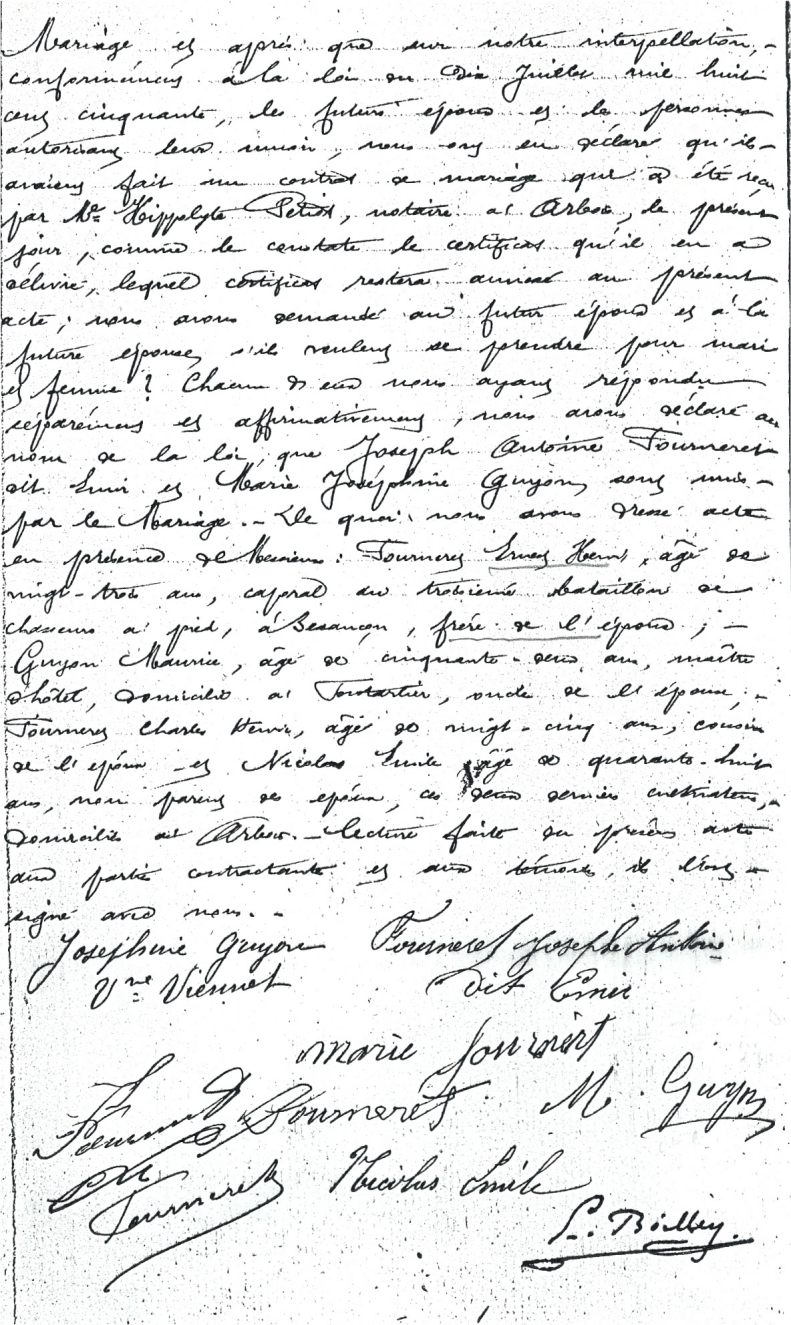 Mariage et après que sur notre interpellation,-
conformément à la loi du Dix Juillet mil huit
cent cinquante, les futurs époux et les personnes
autorisant leur union, nous ont en déclaré qu'ils-
avaient fait un contrat de mariage qui a été reçu
par Me Hippolyte Petiot, notaire à Arbois, le présent
jour, comme le constate le certificat qu'il en a
délivré, lequel certificat restera annexé au présent
acte; nous avons demandé au futur époux et à la
future épouse, s'ils veulent se prendre pour mari
et femme? Chacun d'eux nous ayant répondu
séparément et affirmativement, nous avons déclaré au
nom de la loi, que Joseph Antoine Fourneret
dit Emir et Marie Joséphine Guyon, sont unis-
par le Mariage.- De quoi nous avons dressé acte
en présence de Messieurs: Fourneret Ernest Henri, âgé de
vingt-trois ans, caporal au troisième bataillon de
chasseurs à pied, à Besançon, frère de l'époux; -
Guyon Maurice, âgé de cinquante-deux ans, maître
d'hôtel, domicilié à Pontarlier, oncle de l'épouse; -
Fourneret Charles Henri, âgé de vingt-cinq ans, cousin
de l'époux et Nicolas Emile âgé de quarante-huit
ans, non parent des époux, ces deux derniers cultivateurs, -
domiciliés à Arbois.- Lecture faite du présent acte
aux parties contractantes et aux témoins, ils l'ont -
signé avec nous. -
Joséphine Guyon Fourneret Joseph Antoine
Vve Viennet dit Emir
Marie Fourneret
Fourneret Fourneret M. Guyon
Fourneret Nicolas Emile